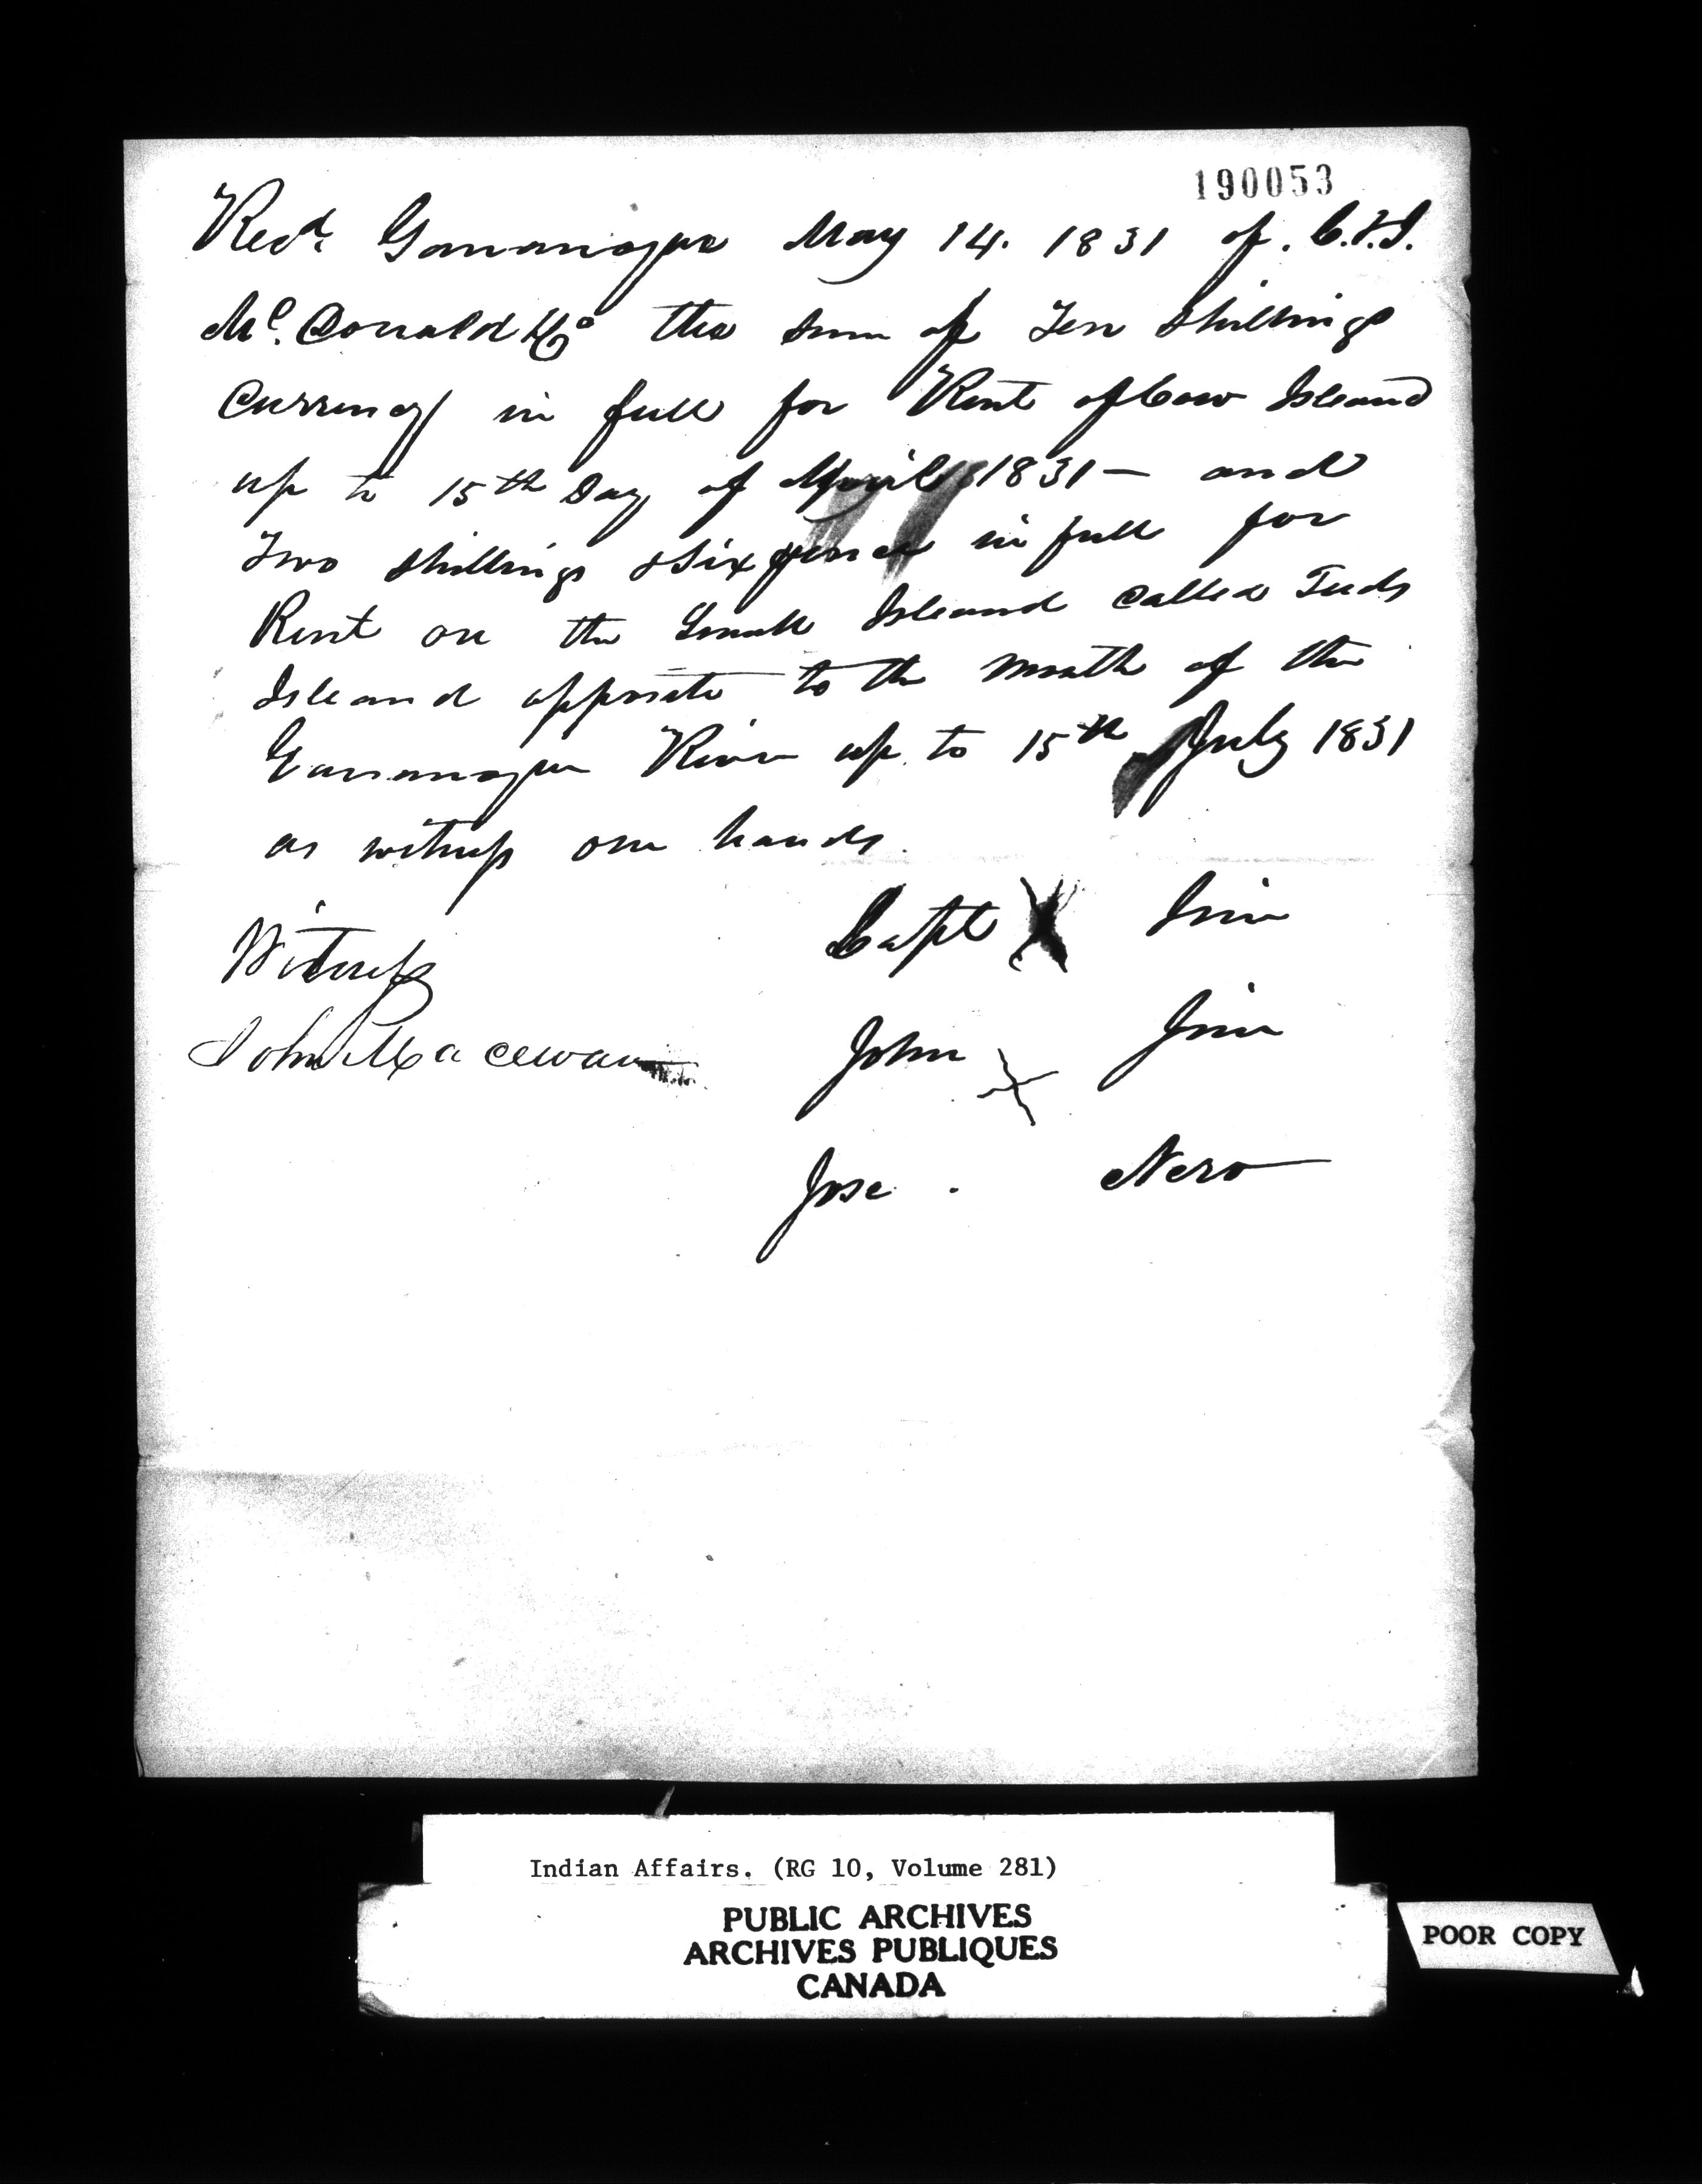 190053
Recd. Gananoque May 14. 1831 of. C. & J.
Mc. Donald & Co the sum of Ten Shillings
Currency in full for Rent of Cow Island
up to 15th Day of April 1831 — and
Two shillings & Six pence in full for
Rent on the Small Island called Tuds
Island opposite to the Mouth of the
Gananoque River up to 15th July 1831
as witness our hands.
Witness
Capt X Jim
John Macewan
John X Jim
Jose . Nero
Indian Affairs. (RG 10, Volume 281)
PUBLIC ARCHIVES
ARCHIVES PUBLIQUES
CANADA
POOR COPY